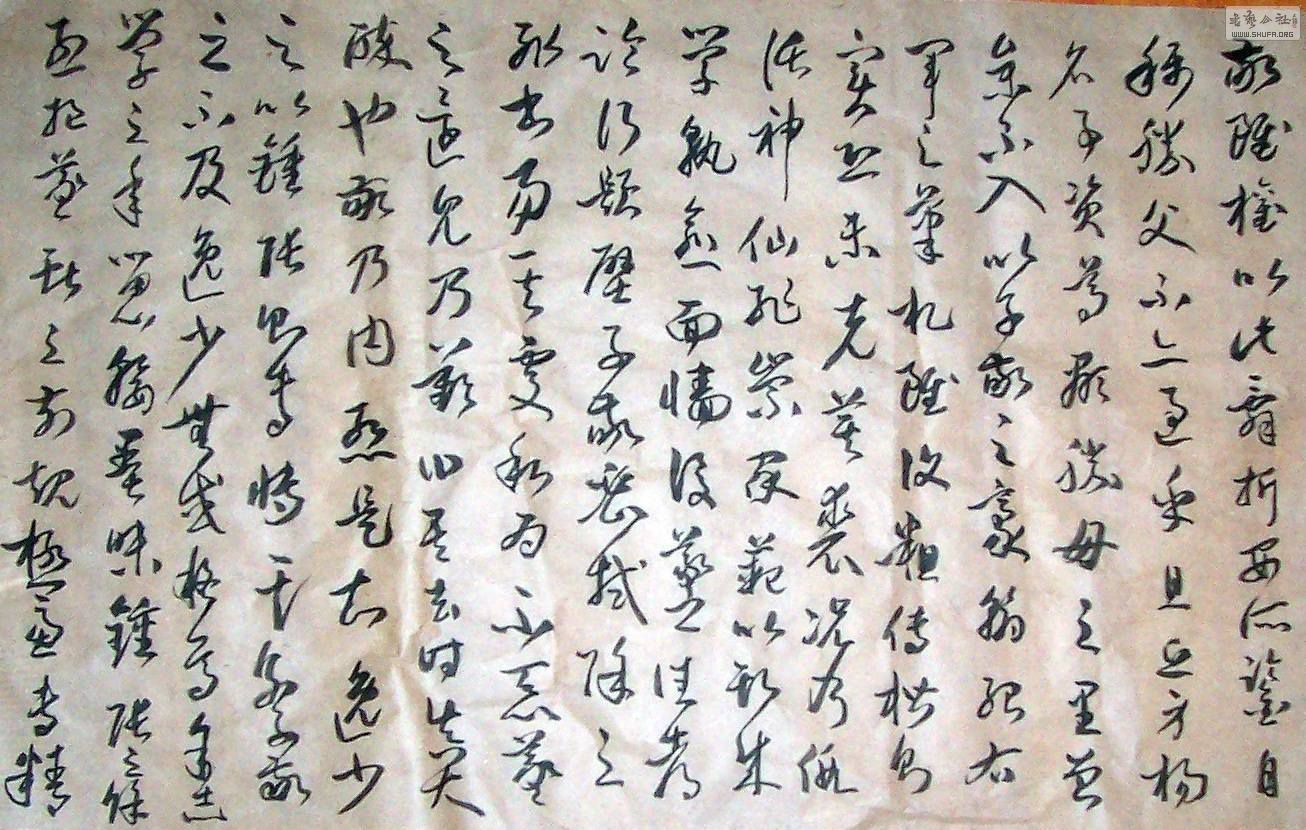 敬雖權以此辭折安所鑒自
稱勝父不亦過乎且立身揚
名事資尊顯勝母之里曾
參不入以子敬之豪翰紹右
軍之筆札雖復粗傳楷則
實恐未克箕裘況乃假
託神仙恥崇家範以斯成
學孰愈面牆後羲之往都
臨行題壁子敬密拭除之
輒書易其處私為不惡羲
之還見乃歎曰吾去時真大
醉也敬乃內慚是知逸少
之比鍾張則專博斯別子敬
之不及逸少無或疑焉余志
學之年留心翰墨味鍾張之餘
烈挹羲獻之前規極慮專精
WWW.SHUFA.ORG